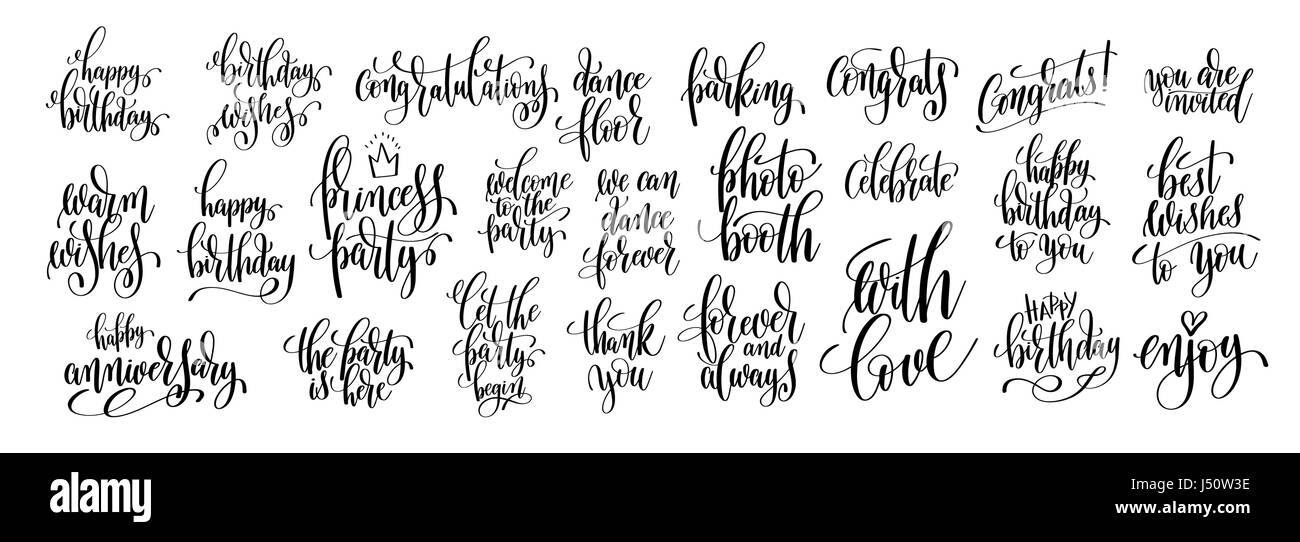 happy
birthday
birthday
wishes
congratulations
dance
floor
parking
congrats
Congrats!
you are
invited
warm
wishes
happy
birthday
princess
party
welcome
to the
party
we can
dance
forever
photo
booth
celebrate
happy
birthday
to you
best
wishes
to you
happy
anniversary
the party
is here
let the
party
begin
thank
you
forever
and
always
with
love
HAPPY
birthday
enjoy
alamy
Image ID: J50W3E
www.alamy.com